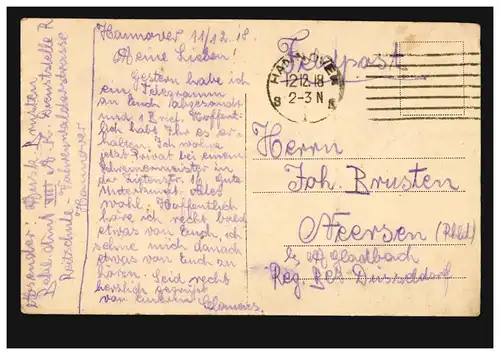 Hannover 11/12.18.
Meine Lieben!
Gestern habe ich
ein Telegramm
an Euch abgesandt
und 1 Brief. Hoffent-
lich habt Ihr es er-
halten. Ich wohne
jetzt Privat bei einem
Schreinermeister in
der 16 Gute
Unterkunft alles
wohl. Hoffentlich
höre ich recht bald
etwas von Euch, ich
sehne mich danach
etwas von Euch zu
hören. Seid recht
herzlich gegrüßt
von eurem
Absender:
VIII A.K.
Reitschule-
Hannover
Feldpost
HANNOVER
12.12.18
2-3 N
Herrn
Joh. Brusten
Neersen (Rhld)
b/ M Gladbach
Reg. Bez Düsseldorf